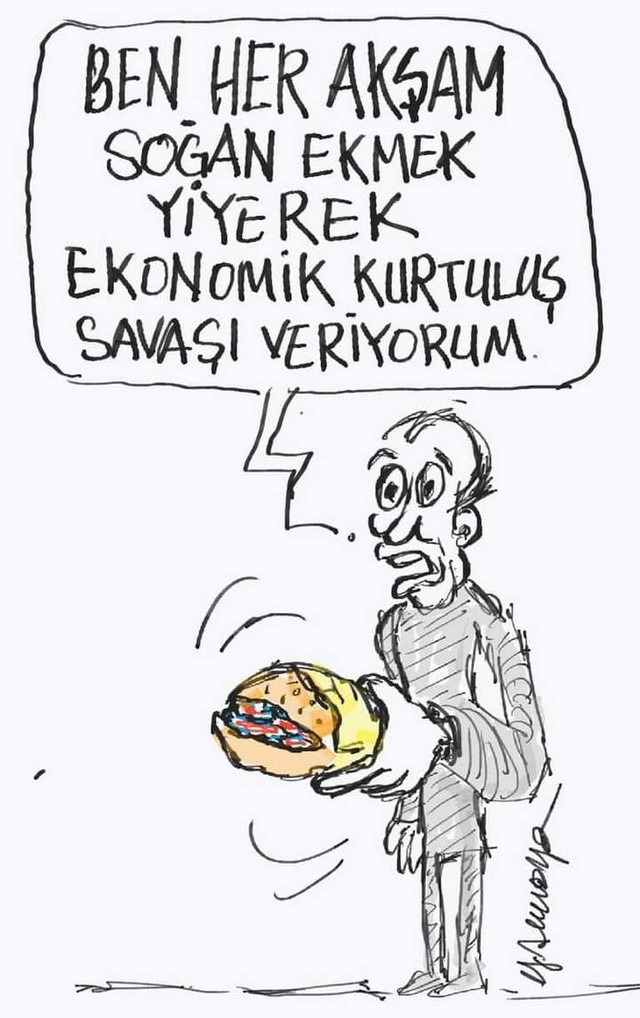 BEN HER AKŞAM
SOĞAN EKMEK
YİYEREK
EKONOMİK KURTULUŞ
SAVAŞI VERİYORUM.